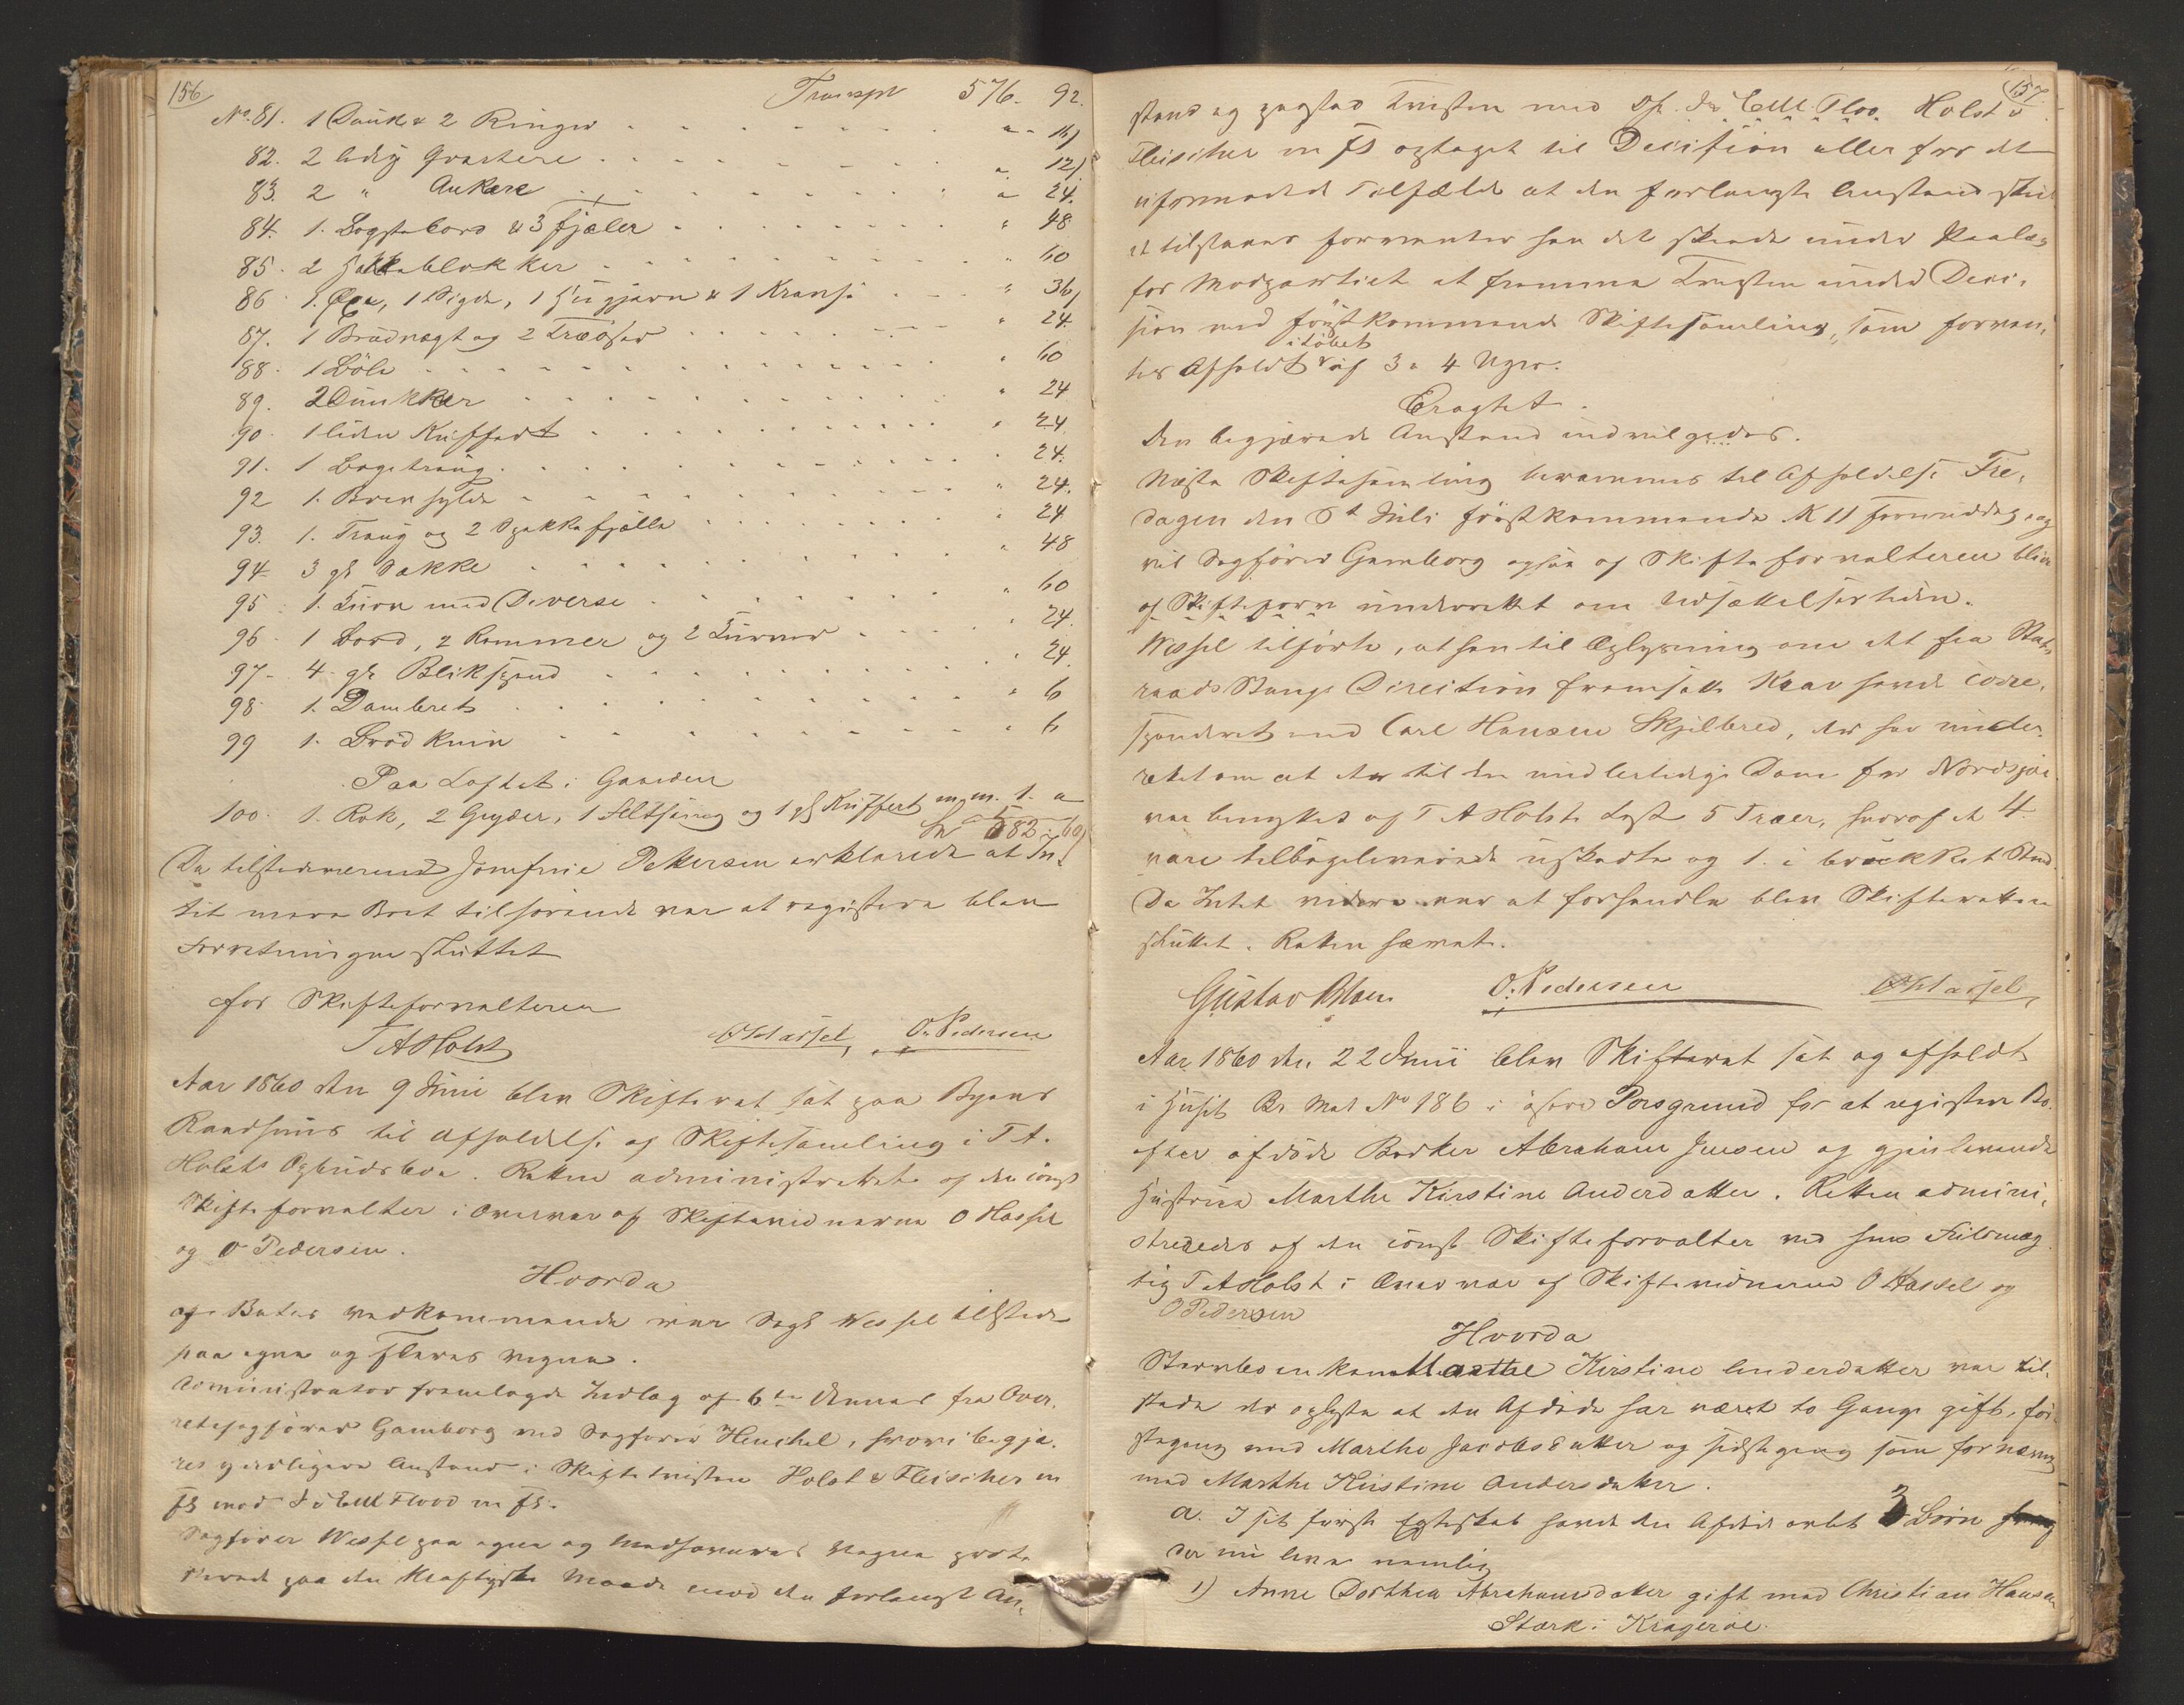 156
Transpt 576. 92.
No. 81. 1 Dunk & 2 Ringer " 16
82. 2 ledig Qvartere " 12
83. 2 " Ankere " 24.
84. 1. Bogstabord & 3 Fjæler " 48
85. 2 Hakkeblokker " 60
86. 1. Øxe, 1 Sigde, 1 Hugjern & 1 Krands " 36
87. 1 Brudvægt og 2 Træøser " 24.
88. 1 Bøle " 60
89. 2 Dunkker " 24
90. 1 liden Kuffert " 24
91. 1 Bagetraug " 24.
92 1. Brensylde " 24.
93. 1. Traug og 2 Spekkefjølle " 24
94. 3 gl Sække " 48
95. 1. Kurv med Diverse " 60
96. 1 Bord, 2 Rammer og 2 Kurver " 24.
97. 4. gl Blikspand " 24.
98. 1. Dambret " 6
99 1. Brødkniv " 6
Paa Loftet i Gaarden
100. 1. Rok, 2 Gryder, 1 Feltseng og 1 gl Kuffert m. m. 1. "
S 582. 60
Da tilstedeværende Jomfrue Pettersen erklærede at In-
tet mere Boet tilhørende var at registere blev
Forretningen sluttet
For Skifteforvalteren
T A Holst OHassel, O. Pedersen
Aar 1860 den 9 Juni blev Skifteret sat paa Byens
Raadhuus til Afholdelse af Skiftesamling i T. A.
Holsts Opbudsboe. Retten administreret af den const
Skifteforvalter i Overvær af Skiftevidnerne O Hassel
og O Pedersen.
Hvorda
af Boets vedkommende var Sagf Wessel tilstede
paa egne og Fleres Vegne.
Administrator fremlagde Indlæg af 6te dennes fra Over-
retssagfører Gamborg ved Sagfører Henchel, hvori begjæ-
res yderligere Anstand i Skiftetvisten Holst & Fleischer m
fl mod Flood m fl.
Sagfører Wessel paa egne og Medhaveres Vegne prote-
sterede paa den kraftigste Maade mod den forlangte An-
157
stand og paastod Tvisten med Flood Holst &
Fleischer m fl optaget til Decision eller for det
uformodede Tilfælde at den forlangte Anstand skul
de tilstaaes forventer han det skeede under Paalæg
for Modpartiet at fremme Tvisten under Deci-
sion ved førstkommende Skiftesamling, som forven-
itøbet
tes Afholdt af 3 a 4 Uger.
Eragtet.
Den begjærede Anstand indvilgedes.
Næste Skiftesamling berammes til Afholdelse Fre-
dagen den 6t Juli førstkommende Kl 11 Formiddag, og
vil Sagfører Gamborg ogsaa af Skifteforvalteren blive
af Skifteforv underrettet om Udsættelsestiden.
Wessel tilførte, at han til Oplysning om det fra Stats-
raads Stangs Direction fremsatte Krav havde corre-
sponderet med Carl Hansen Skjilbred, der har under-
rettet om at der til den midlertidige Dam for Nordsjøe
var benyttet af T A Holsts Last 5 Træer, hvoraf de 4.
vare tilbageleverede uskadte og 1. i brækket Stand.
Da Intet videre var at forhandle blev Skifteretten
sluttet. Retten hævet.
Gustav Blom O. Pedersen OHassel,
Aar 1860 den 22 Juni blev Skifteret sat og afholdt
i Huset Br Mat No 186 i østre Porsgrund for at registere Bo
efter afdøde Bødker Abraham Jensen og gjenlevende
Hustrue Marthe Kirstine Andersdatter. Retten admini-
streredes af den const Skifteforvalter ved hans Fuldmæg
tig T A Holst i Overvær af Skiftevidnerne O Hassel og
O Pedersen
Hvorda
Stervboenken Marthe Kirstine Andersdatter var til-
stede der oplyste at den Afdøde har været to Gange gift, før
stegang med Marthe Jacobsdatter og sidstegang som fornævnt
med Marthe Kirstine Andersdatter.
a. I sit første Egteskab havde den Afdøde avlet 3 Børn
der nu leve nemlig
1) Anne Dorthea Abrahamsdatter gift med Christian Hansen
Stærk i Kragerøe.